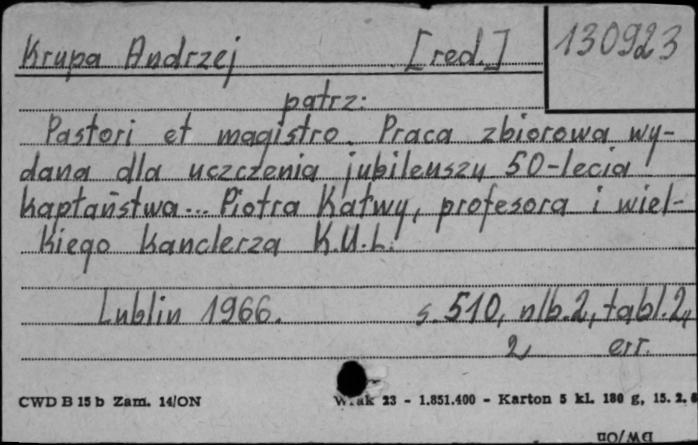 130923
Krupa Andrzej [red.]
patrz:
Pastori et magistro. Praca zbiorowa wy-
dana dla uczczenia jubileuszu 50-lecia
kapłaństwa... Piotra Kałwy, profesora i wiel-
kiego kanclerza K.U.L.
Lublin 1966. s. 510, nlb. 2, tabl. 2,
2 err.
CWD B 15 b Zam. 14/ON
W. ak 23 - 1.851.400 - Karton 5 kl. 180 g, 15. 2. 6
DW/On